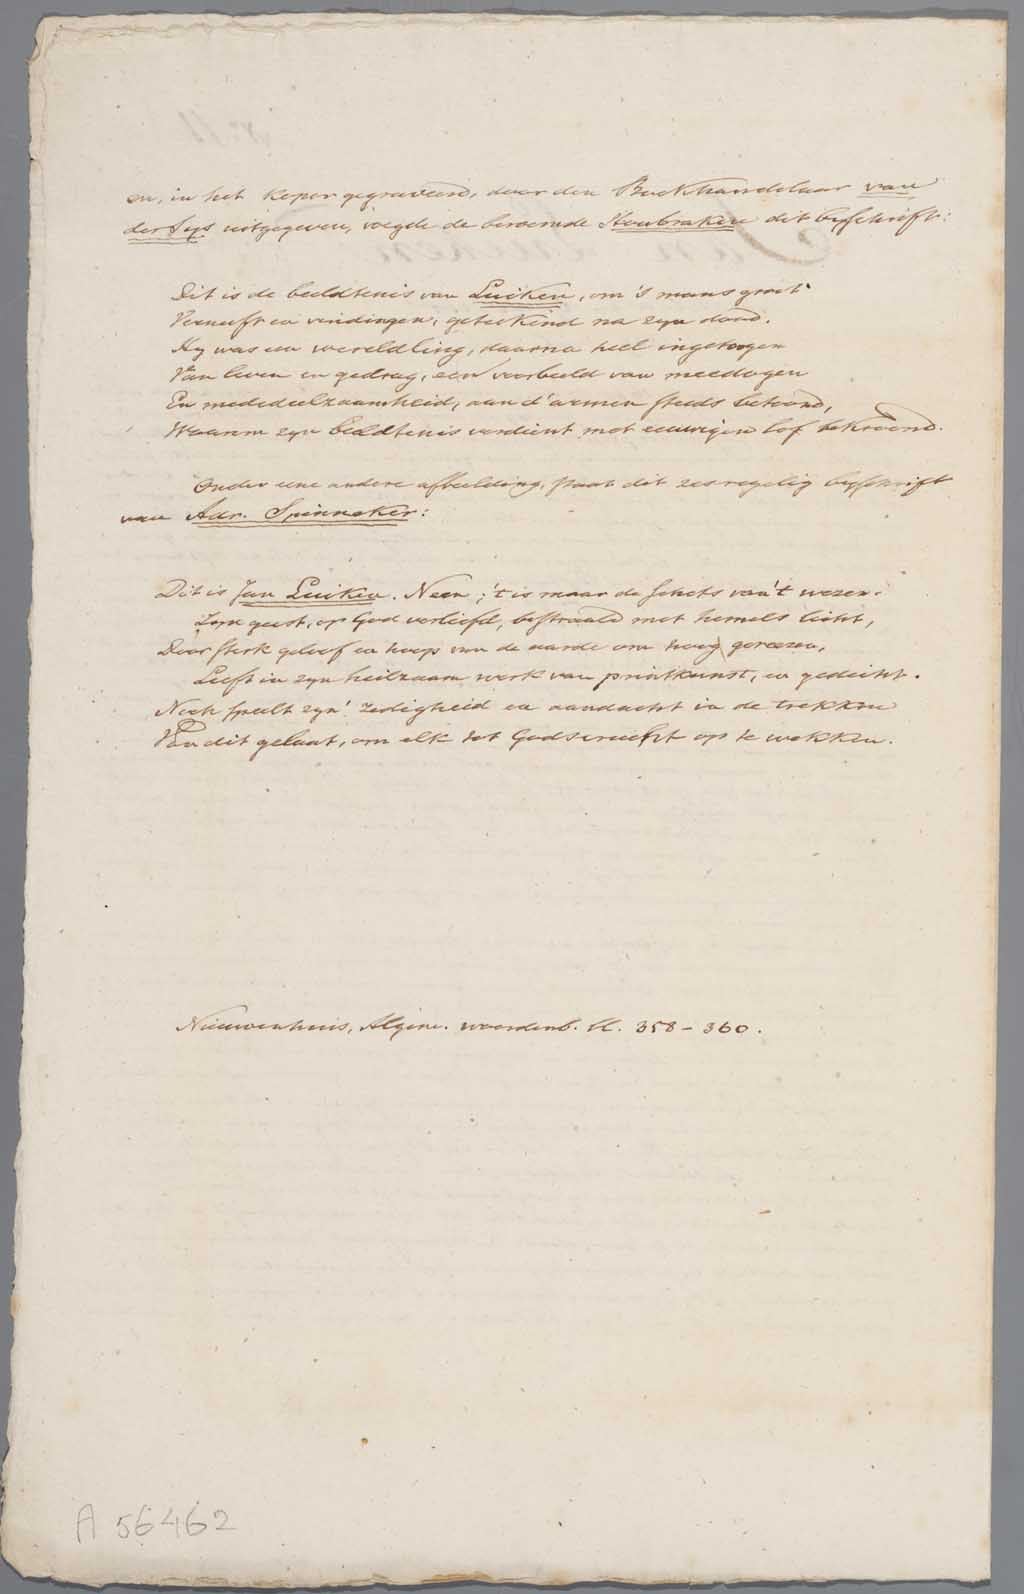 en, in het koper gegraveerd, door den Boekhandelaar van
der Sys uitgegeven, voegde de beroemde Houbraken dit byschrift:
Dit is de beeldtenis van Luiken, om 's mans groot
Vernuft en vindingen, geteekend na zyn dood.
Hy was een wereldling, daarna heel ingetogen
Van leven en gedrag, een voorbeeld van meedogen
En mededeelzaamheid, aan d'armen steeds betoond,
Waarom zyn beeldtenis verdient met eeuwigen lof bekroond.
Onder eene andere afbeelding, staat dit zesregelig byschrift
van Adr. Spinneker:
Dit is Jan Luiken. Neen; 't is maar de schets van 't wezen.
Zyn geest, op God verliefd, bestraald met hemels licht,
Door sterk geloof en hoop van de aarde om hoog gerezen,
Leeft in zyn heilzaam werk van printkunst, en gedicht.
Noch speelt zyn' zedigheid en aandacht in de trekken
Van dit gelaat, om elk tot Godsvrucht op te wekken.
Nieuwenhuis, Algem. woordenb. bl. 358-360.
A 56462